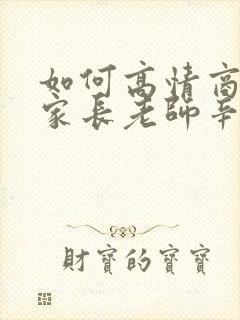 如何高情商
家長老師辛
財寶的寶寶